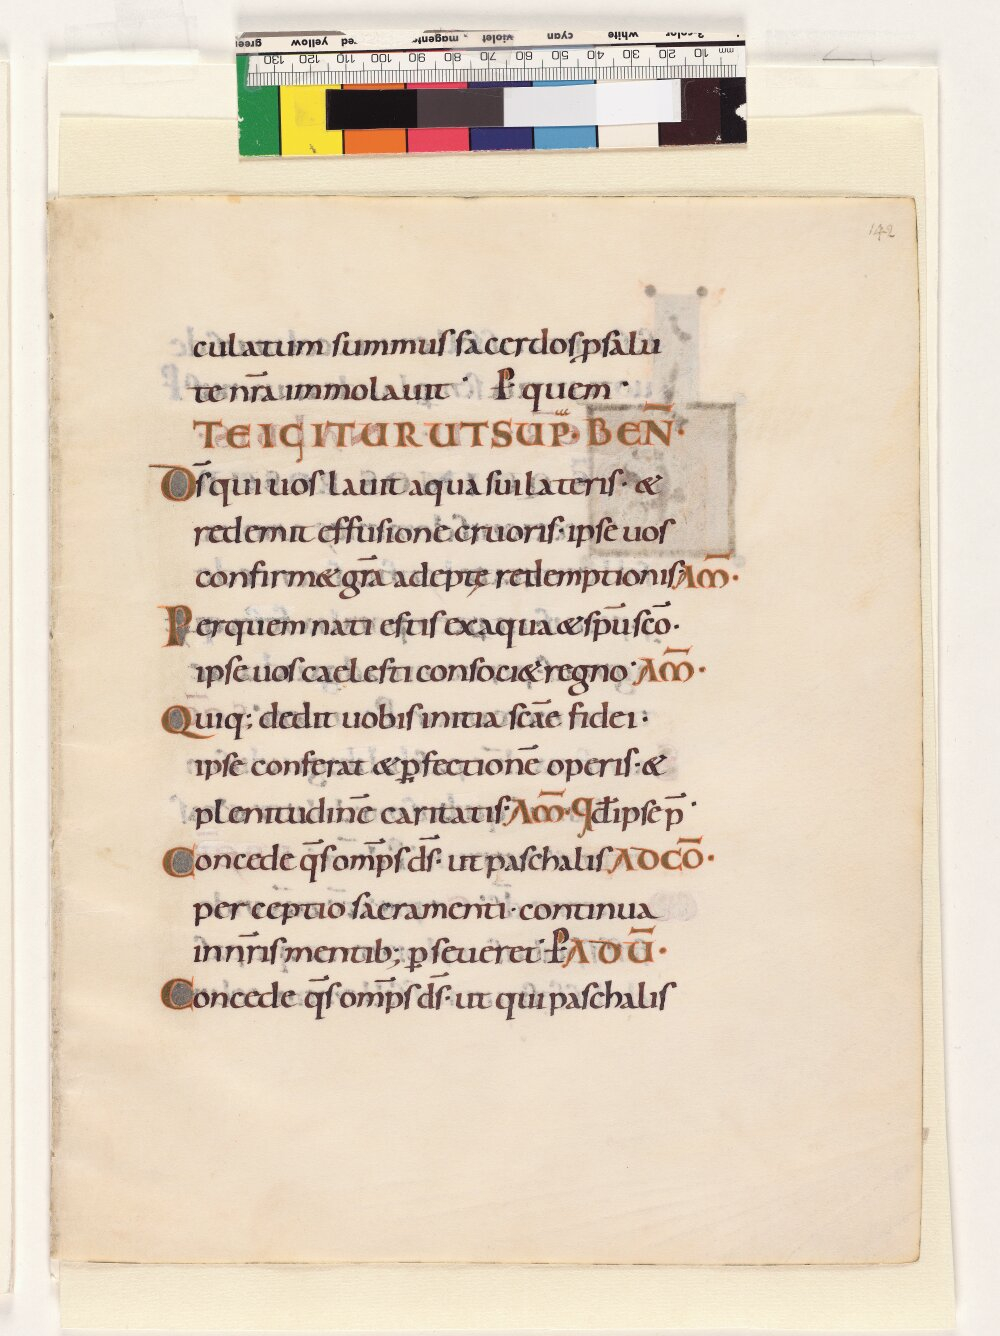 green yellow red magenta violet cyan white 3-color
130 120 110 100 90 80 70 60 50 40 30 20 10 mm
142
culatum summus sacerdos, p̱salu
te nr̄a immolauit · P̱ quem ·
TE IGITUR UT SUP̄· BEN̄·
Dſ̄ qui uos lauit aqua sui lateris· &
redemit effusione cruoris· ipse uos
confirm& gr̄a adeptę redemptionis AM̄·
Per quem nati estis ex aqua & sp̄u sc̄o·
ipse uos caelesti consoci& regno· AM̄·
Quiq; dedit uobis initia sc̄ae fidei·
ipse conferat & p̱fectionē operis· &
plenitudinē caritatis· AM̄· qđ ipse p̄·
Concede q̄s omp̄s ds̄· ut paschalis AD CŌ·
perceptio sacramenti· continua
in nr̄is mentib; p̱seueret· P̱ AD Ū·
Concede q̄s omp̄s ds̄· ut qui paschalis